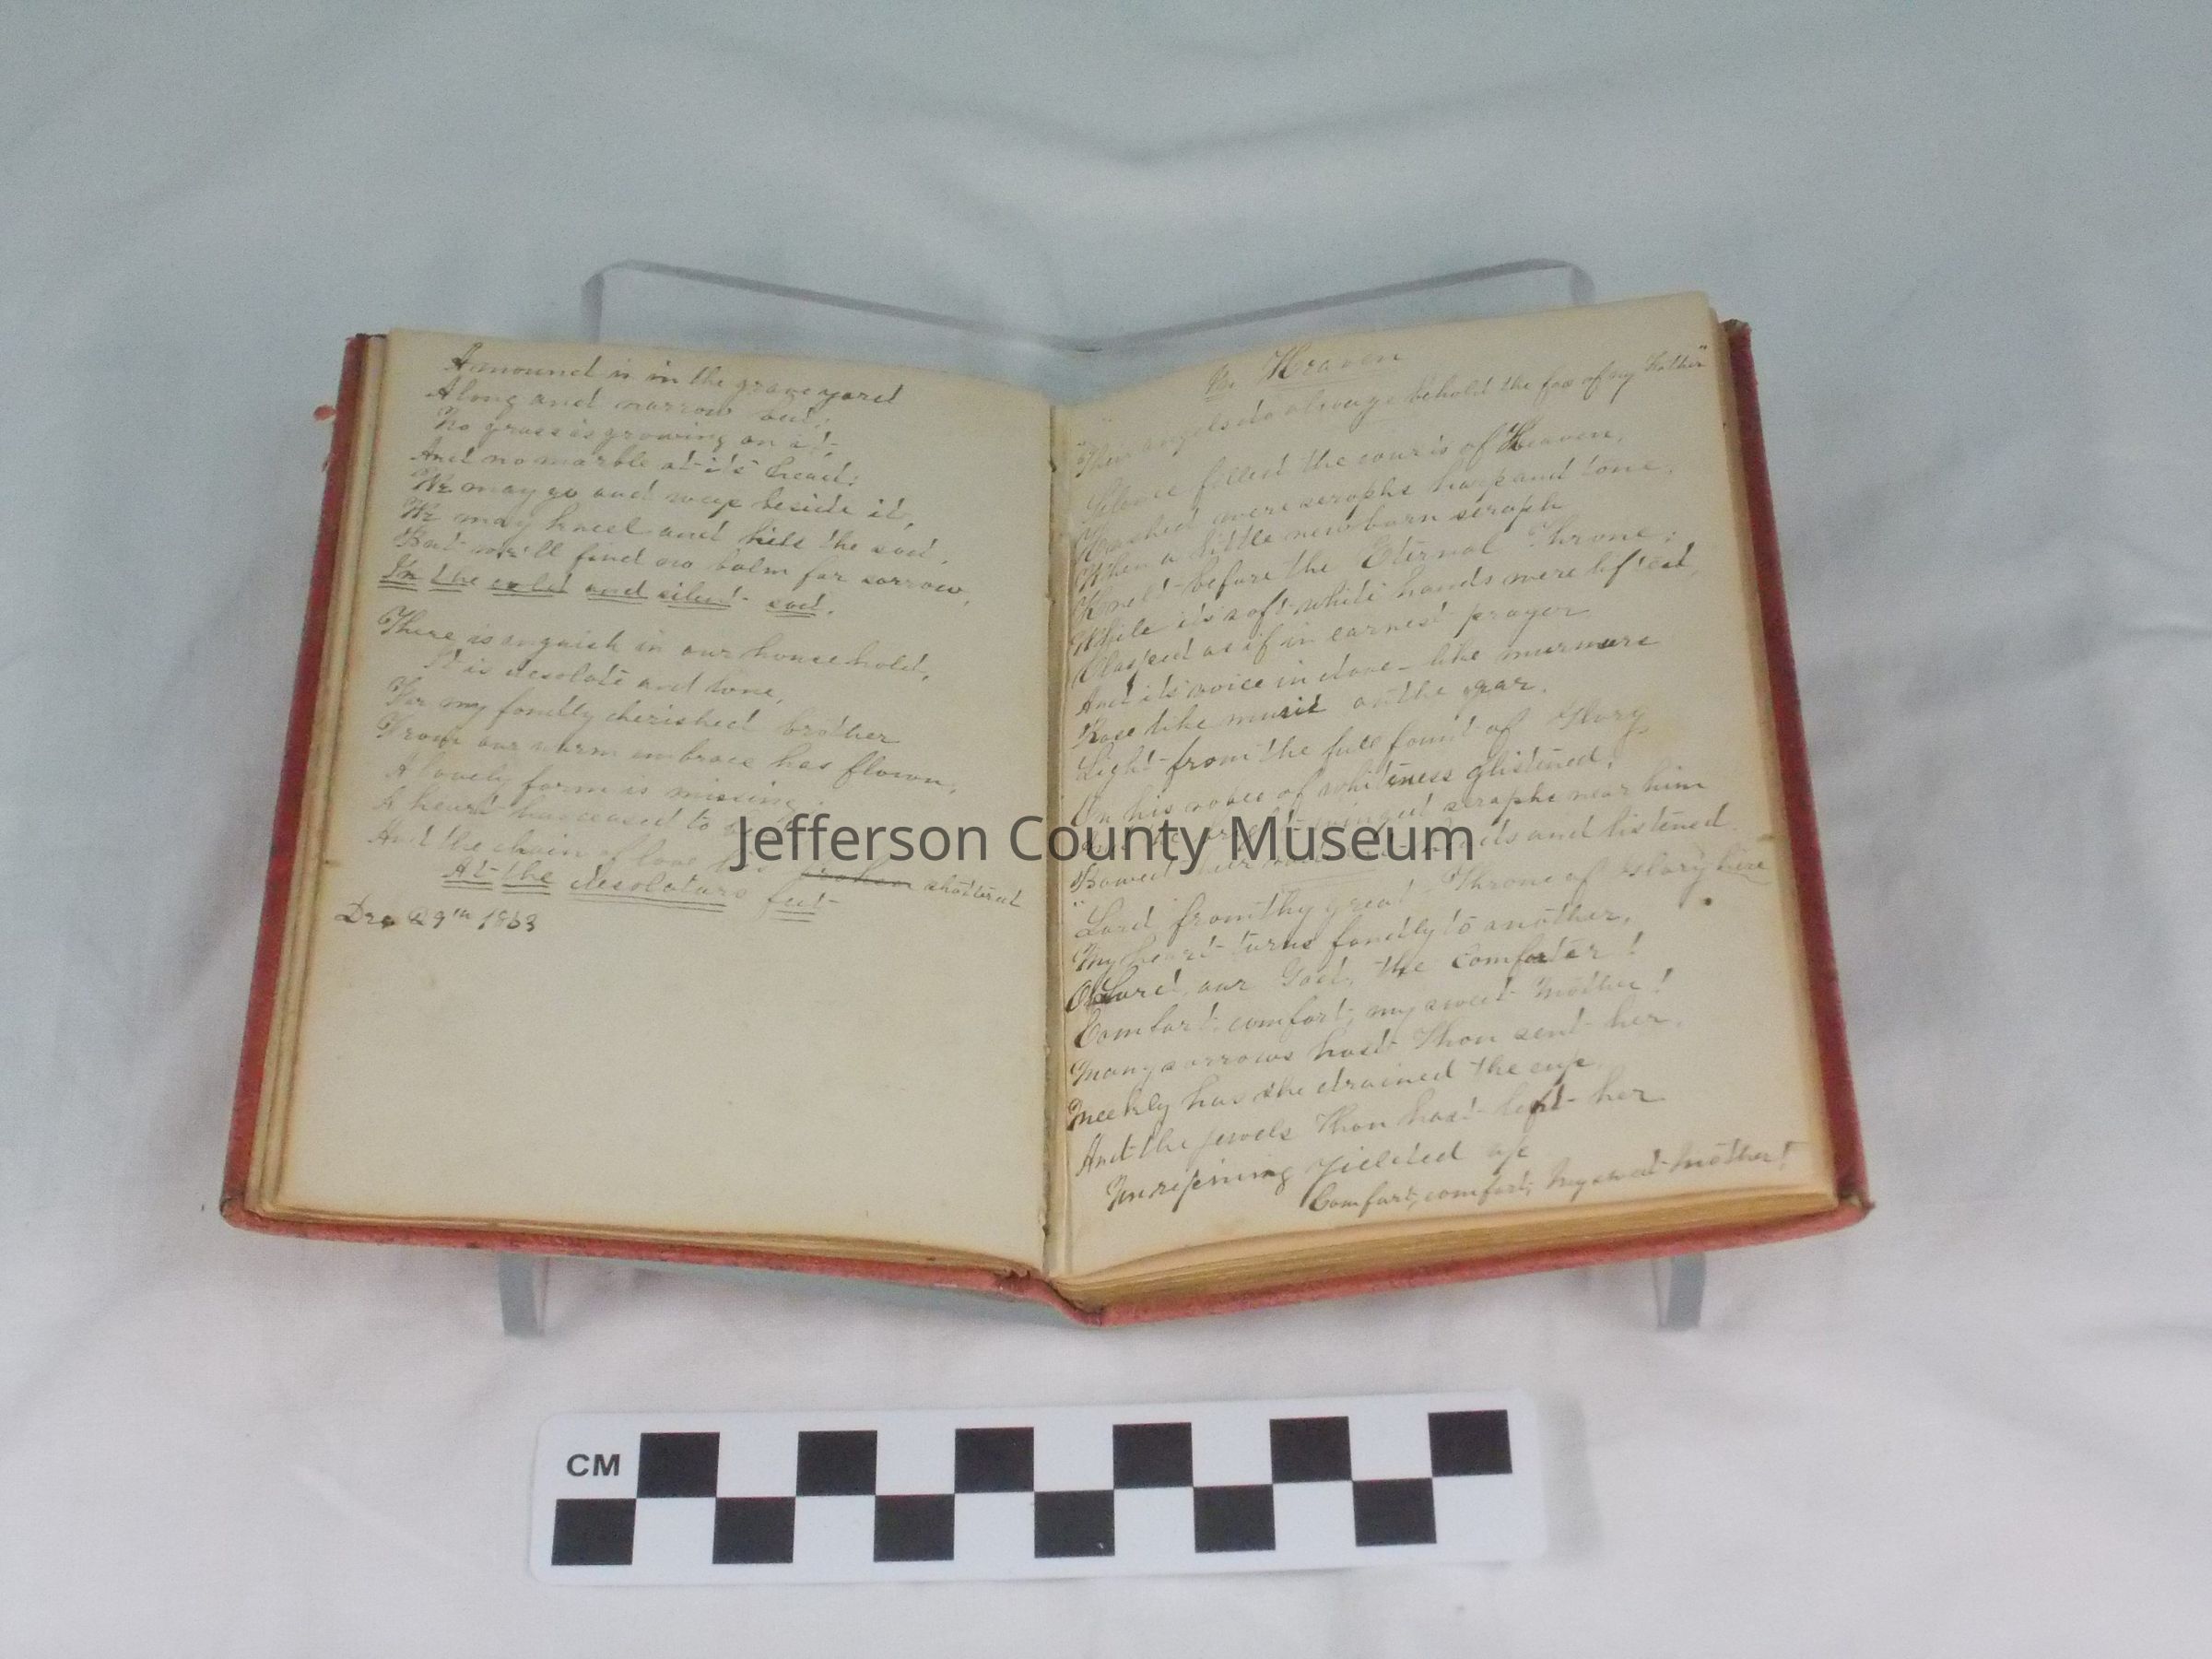 A mound is in the graveyard
A long and narrow bed;
No grass is growing on it,
And no marble at it's head:
We may go and weep beside it,
We may kneel and kiss the sod,
But we'll find no balm for sorrow,
In the cold and silent sod.
There is anguish in our household,
It is desolate and lone,
For my fondly cherished brother
From our warm embrace has flown,
A lovely form is missing,
A heart has ceased to
And the chain of love is broken shattered
At the desolators feet
Dec 29th 1863
In Heaven
"Their angels do always behold the face of my Father"
Silence filled the courts of Heaven,
Hushed were seraphs harp and tone,
When a little new born seraph
Knelt before the Eternal Throne;
While it's soft white hands were lifted,
Clasped as if in earnest prayer
And it's voice in dove-like murmurs
Rose like music on the ear.
Light from the full fount of Glory
On his robes of whiteness glistened,
And the bright winged seraphs near him
Bowed their and listened
"Lord from thy great Throne of Glory here
My heart turns fondly to another,
Oh Lord, our God, the Comforter!
Comfort, comfort, my sweet Mother!
Many sorrows hast Thou sent her,
Meekly has she drained the cup
And the jewels Thou hast left her
Unrepining yielded up
Comfort, comfort, My sweet Mother!
Jefferson County Museum
CM